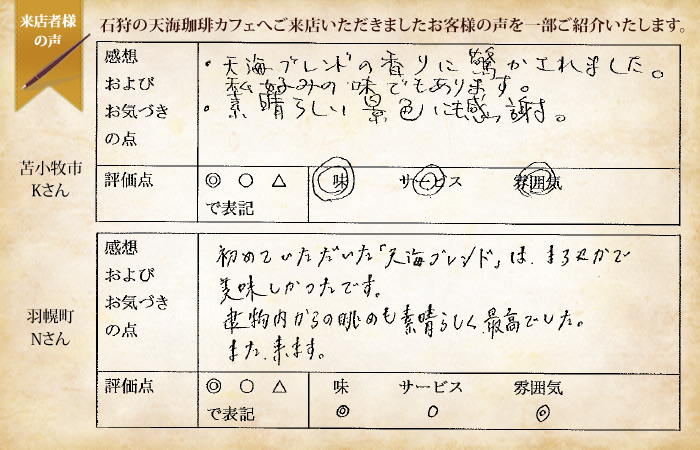 来店者様
の声
石狩の天海珈琲カフェへご来店いただきましたお客様の声を一部ご紹介いたします。
苫小牧市
Kさん
感想
および
お気づき
の点
・天海ブレンドの香りに驚かされました。
私好みの味でもあります。
・素晴らしい景色にも感謝。
評価点
◎ ○ △
で表記
味 サービス 雰囲気
羽幌町
Nさん
感想
および
お気づき
の点
初めていただいた「天海ブレンド」は、まろやかで
美味しかったです。
建物内からの眺めも素晴らしく、最高でした。
また、来ます。
評価点
◎ ○ △
で表記
味 サービス 雰囲気
◎ ○ ◎